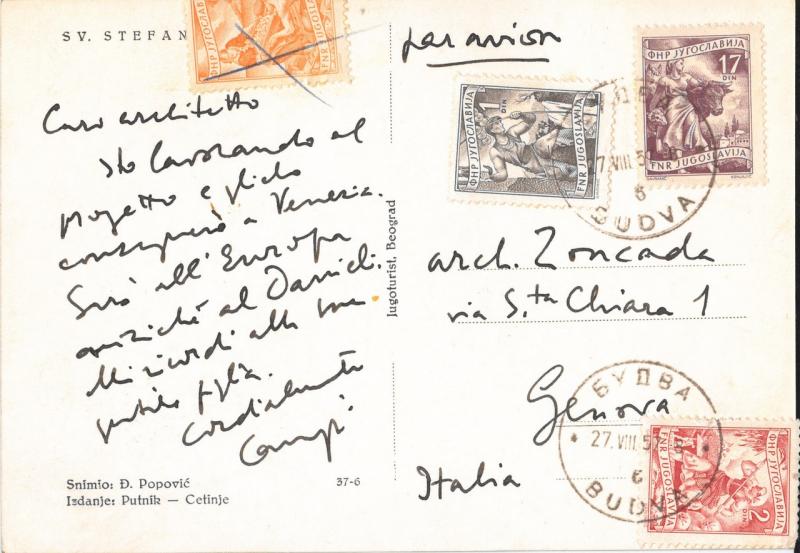 SV. STEFAN
par avion
ФНР ЈУГОСЛАВИЈА
FNR JUGOSLAVIJA
ФНР ЈУГОСЛАВИЈА
1 DIN
FNR JUGOSLAVIJA
ФНР ЈУГОСЛАВИЈА
17 DIN
FNR JUGOSLAVIJA
27. VIII. 5
6
BUDVA
Caro architetto
sto lavorando al
progetto e glielo
consegnerò a Venezia.
Sarò all'Europa
anziché al Danieli.
Mi ricordi alla sua
gentile figlia.
Cordialmente
Jugoturist, Beograd
arch. Zoncada
via S.ta Chiara 1
Genova
Italia
БУДВА
27. VIII. 5
6
BUDVA
ФНР ЈУГОСЛАВИЈА
2
FNR JUGOSLAVIJA
Snimio: Đ. Popović
Izdanje: Putnik — Cetinje
37-6